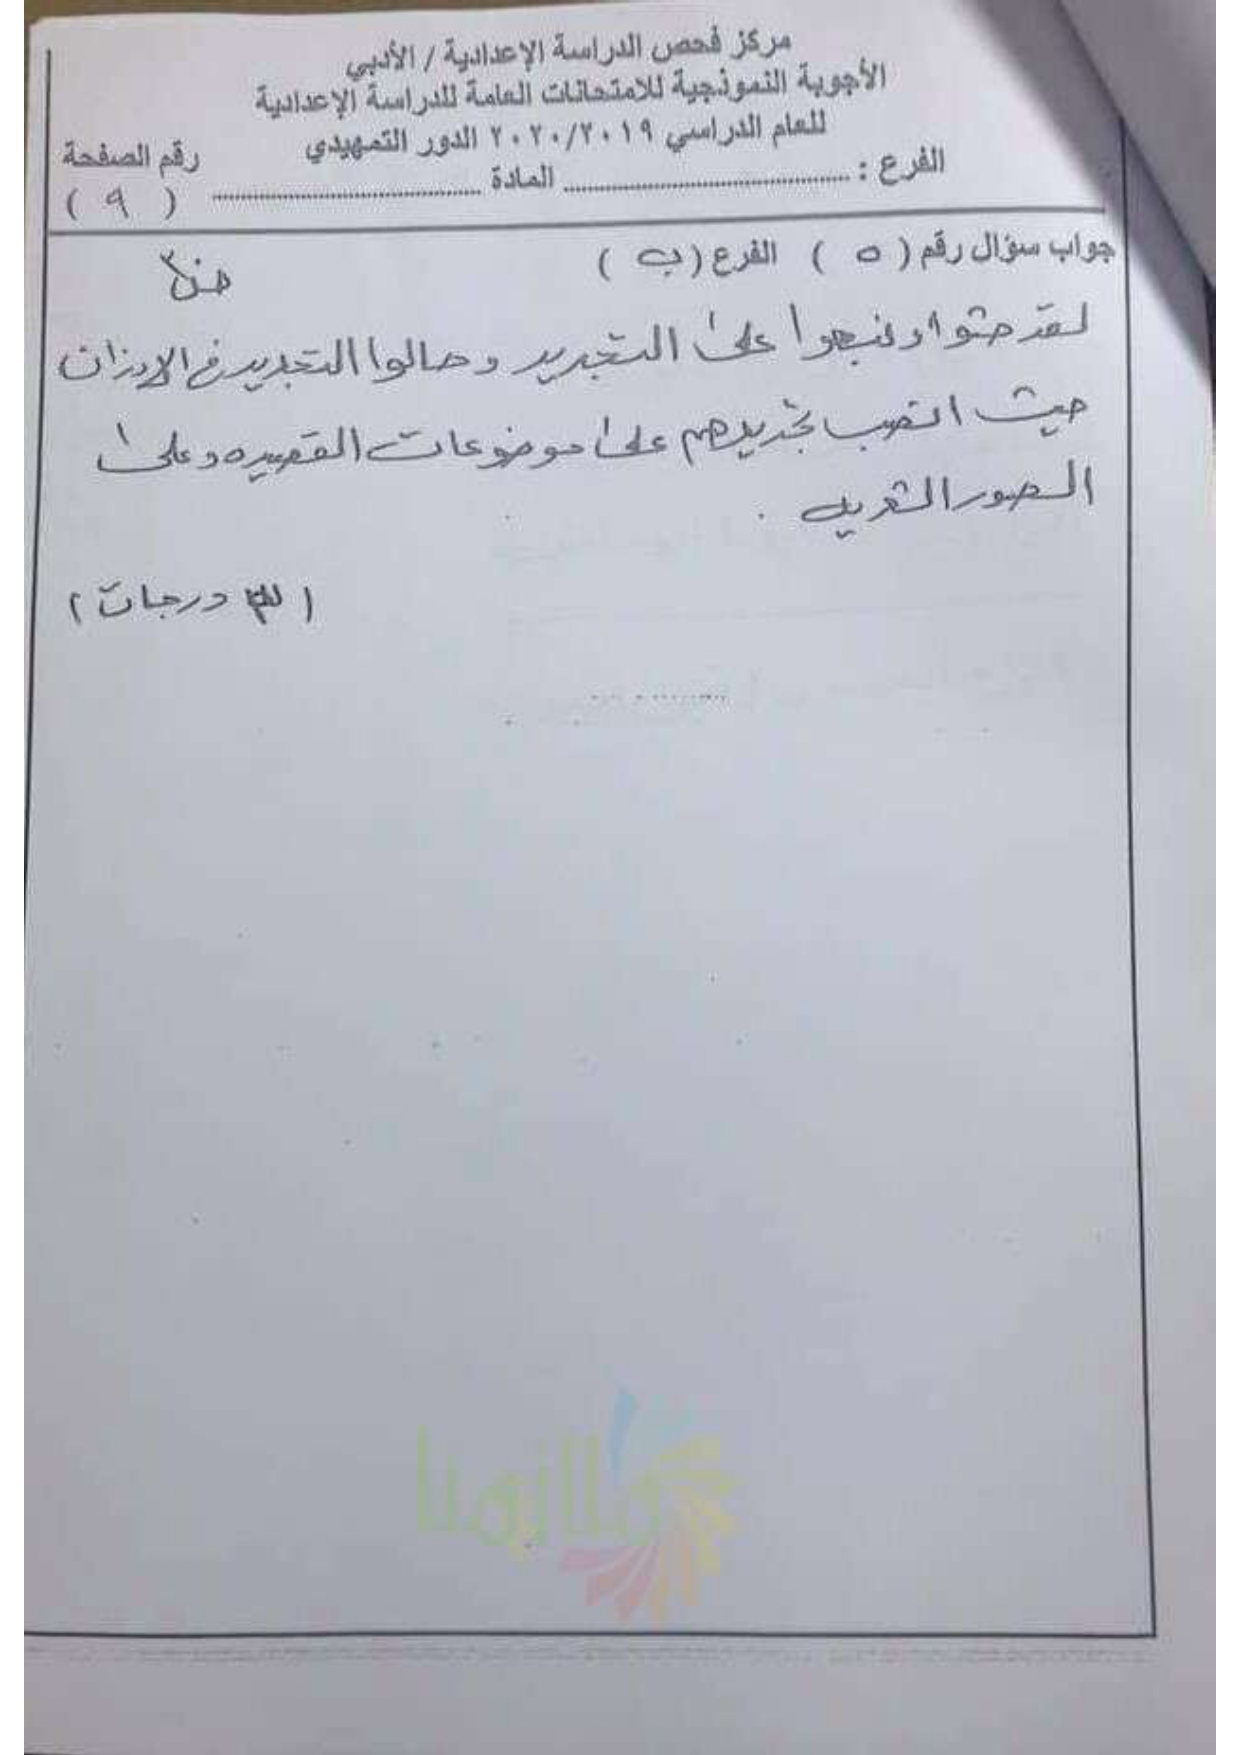 مركز فحص الدراسة الإعدادية / الأدبي
الأجوبة النموذجية للامتحانات العامة للدراسة الإعدادية
للعام الدراسي ٢٠٢٠/٢٠١٩ الدور التمهيدي
رقم الصفحة
الفرع : ........................ المادة ........................
( ٩ )
جواب سؤال رقم ( ٥ ) الفرع ( ب )
لقد حثوا على التجديد وحالوا التجديد في الاوزان
حيث انصب تجديدهم على موضوعات القصيده وعلى
الصور الشعريه .
( درجات )
ملازمنا